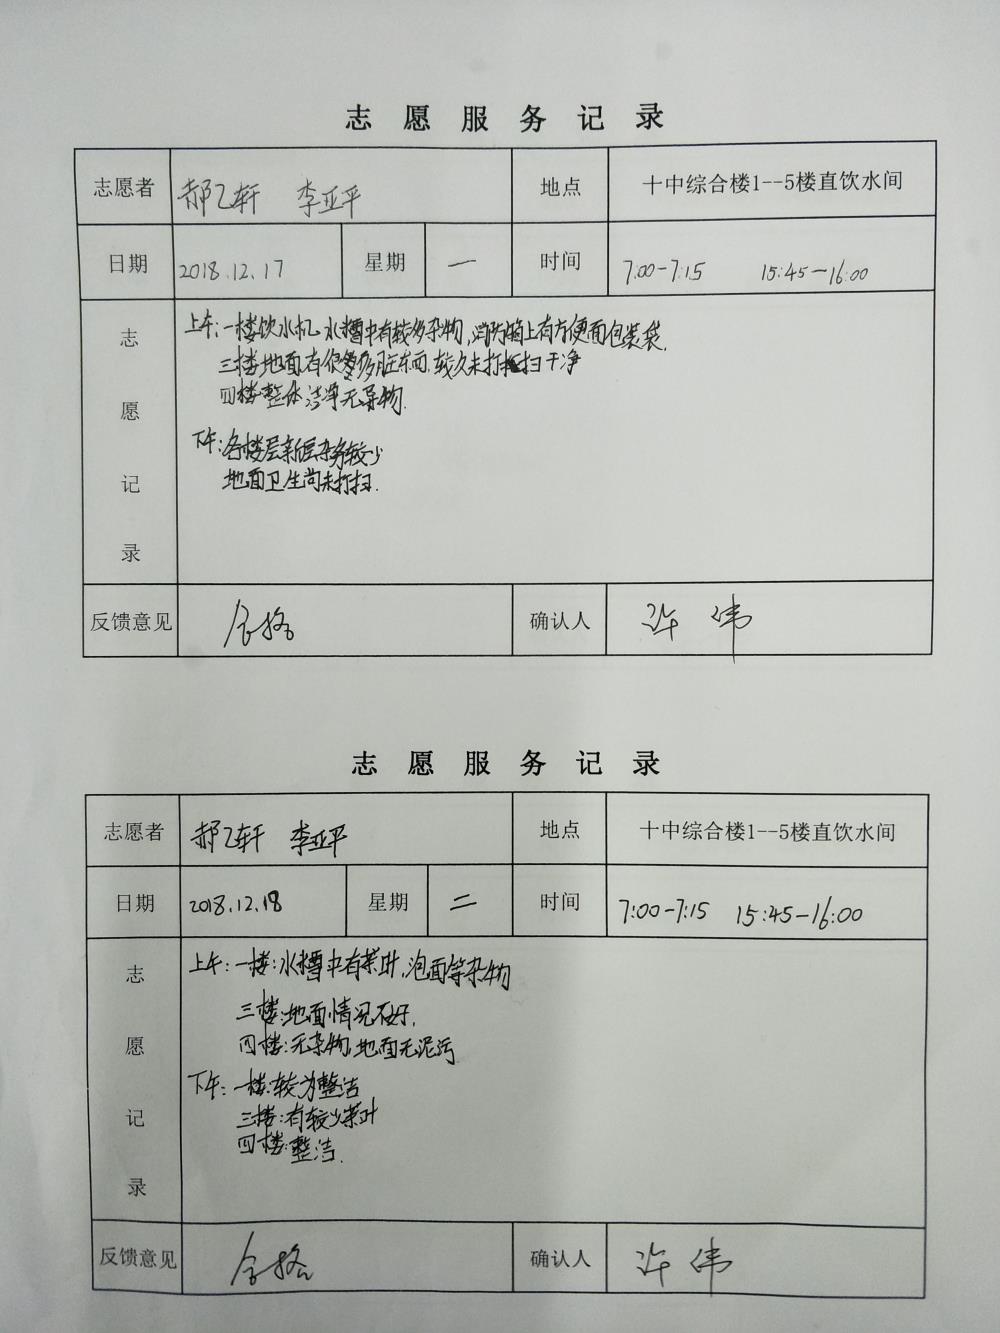 志愿服务记录
志愿者 郝乙轩 李亚平 地点 十中综合楼1--5楼直饮水间
日期 2018.12.17 星期 一 时间 7:00-7:15 15:45-16:00
志愿记录
上午:一楼饮水机水槽中有较多杂物,消防箱上有方便面包装袋.
三楼地面有很多脏东西,较久未打扫干净
四楼整体洁净无异物.
下午:各楼层新层杂务较少
地面卫生尚未打扫.
反馈意见 合格 确认人 许伟
志愿服务记录
志愿者 郝乙轩 李亚平 地点 十中综合楼1--5楼直饮水间
日期 2018.12.18 星期 二 时间 7:00-7:15 15:45-16:00
志愿记录
上午:一楼:水槽中有茶叶,泡面等杂物
三楼:地面情况不好.
四楼:无杂物,地面无泥污
下午:一楼:较为整洁
三楼:有较少茶叶
四楼:整洁.
反馈意见 合格 确认人 许伟